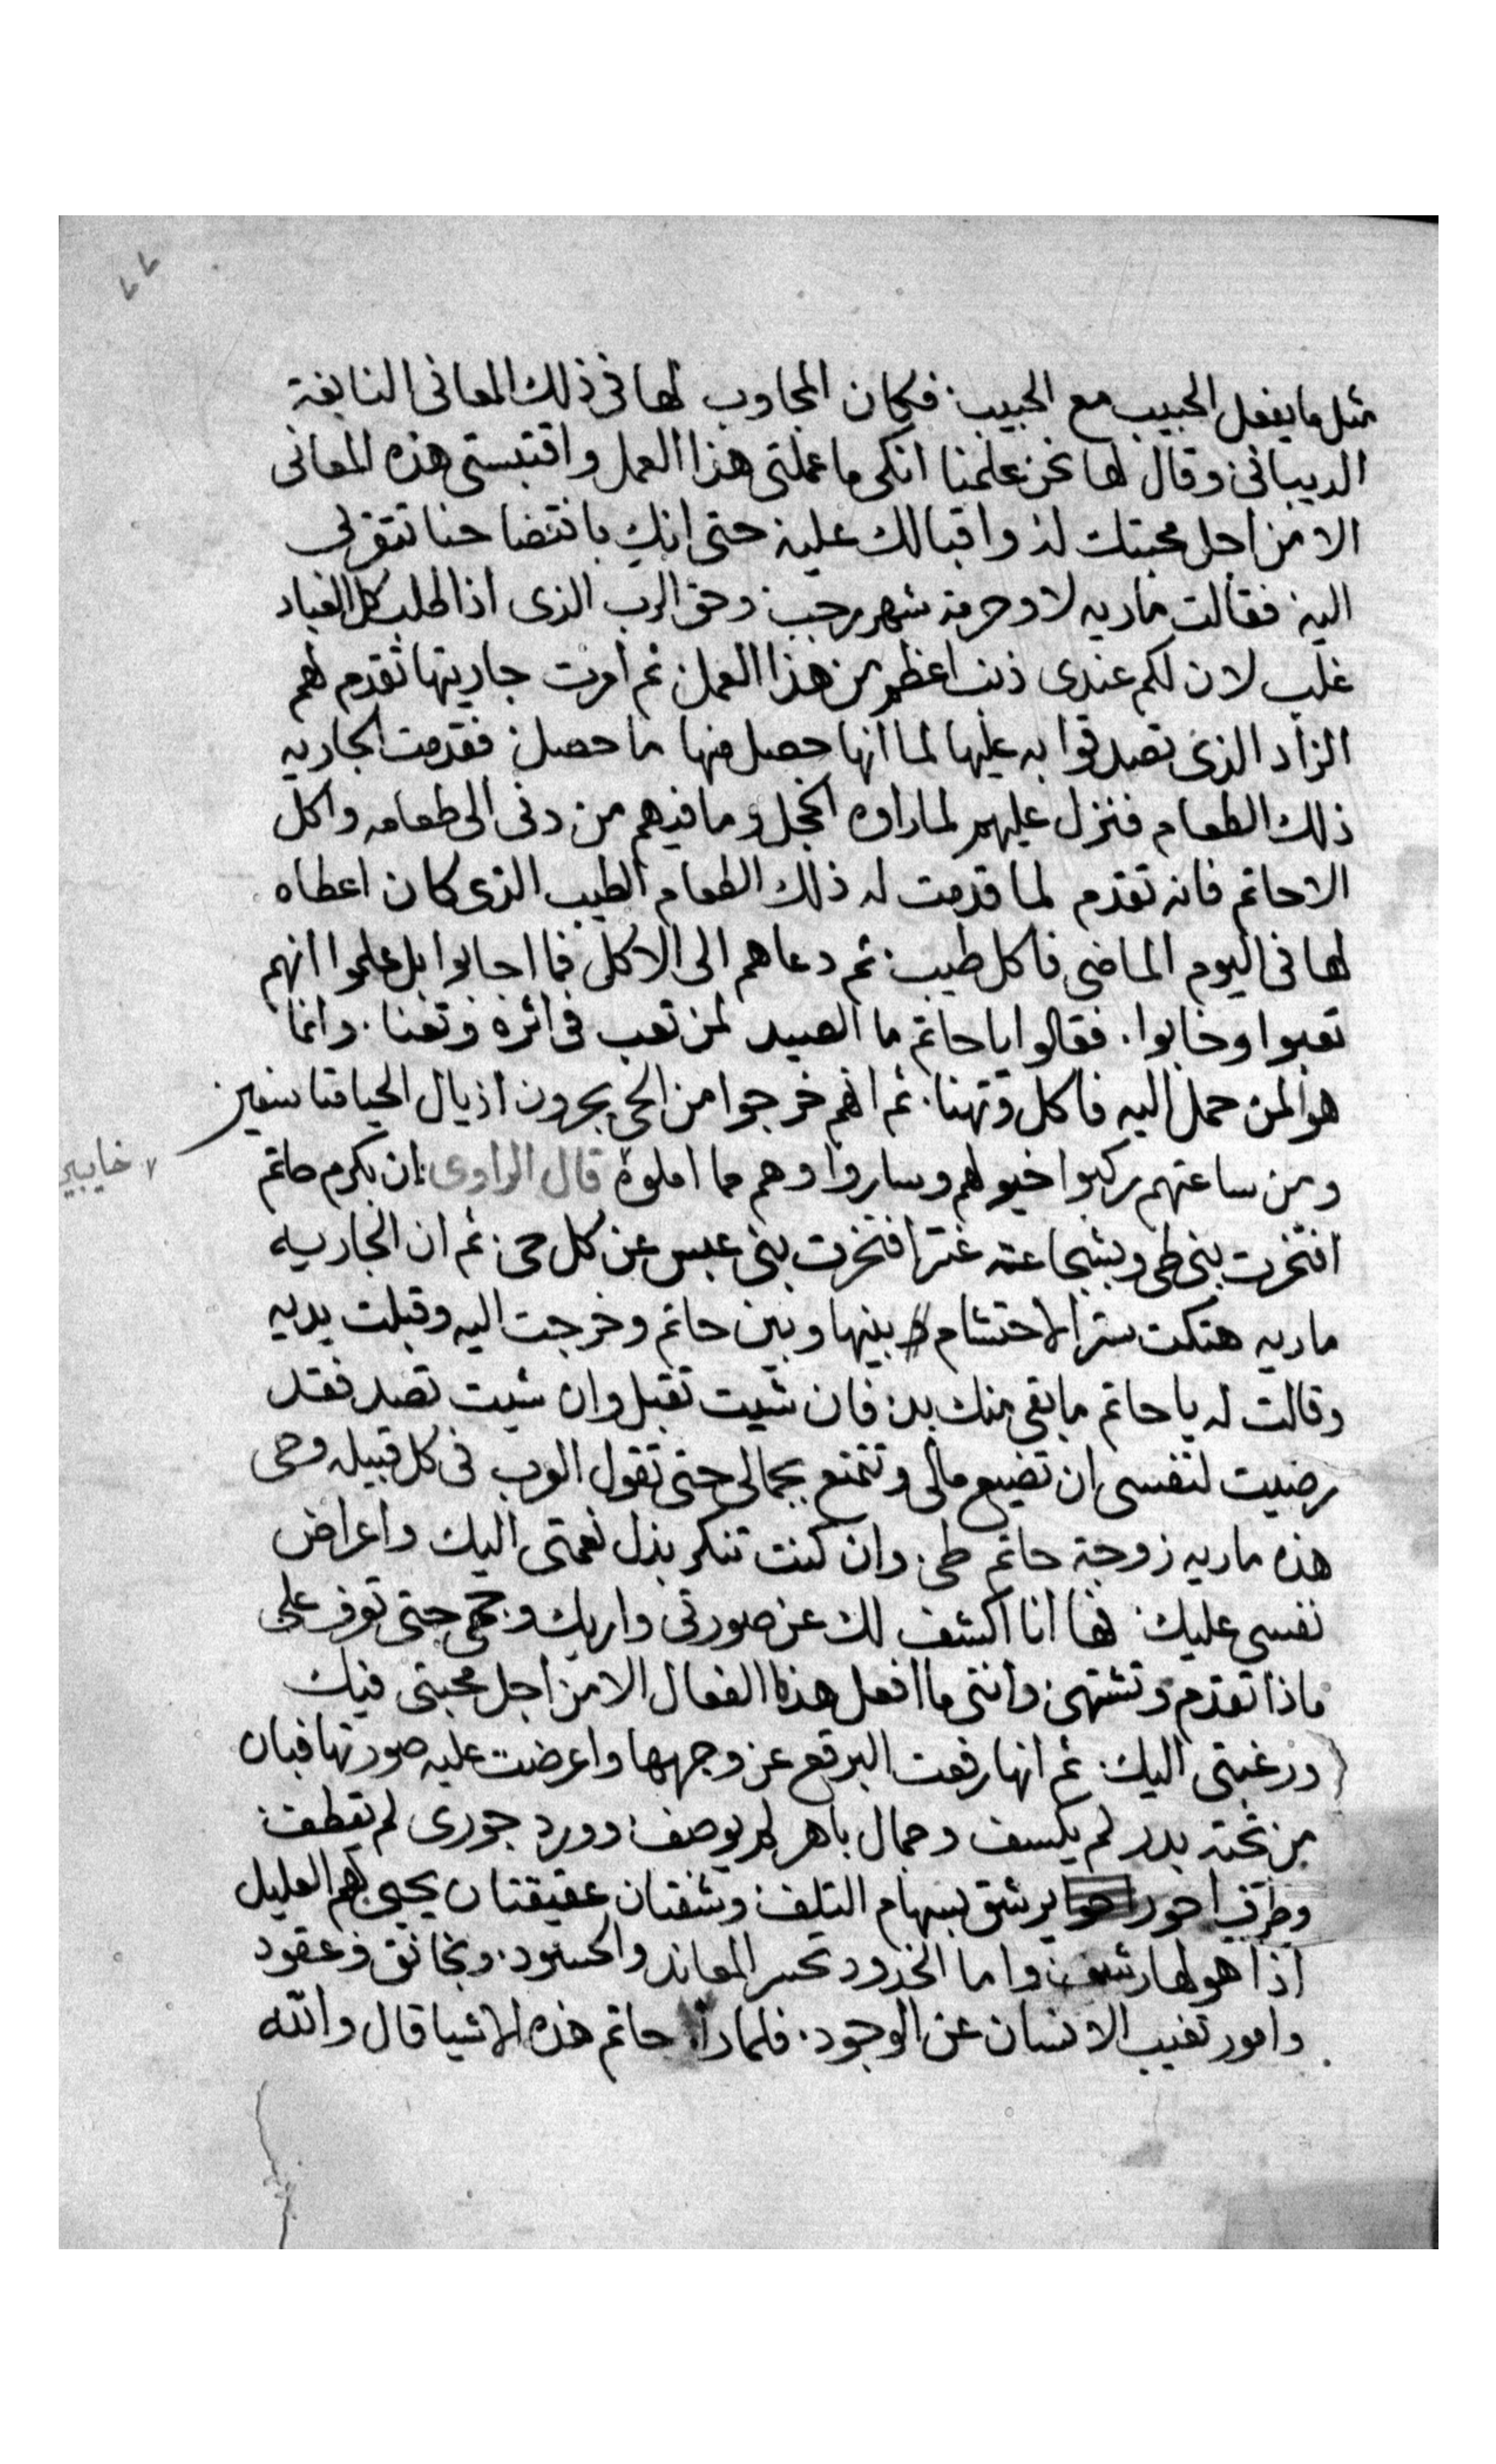 ٧٧
مثل ما يفعل الحبيب مع الحبيب. فكان المجاوب لها في ذلك المعاني النابغة
الديباني وقال لها نحن علمنا انكي ما عملتي هذا العمل واقتبستي هذه المعاني
الا من اجل محبتك له واقبالك عليه حتى انك بافتضاحنا تتقربي
اليه فقالت ماريه لا وحرمة شهر رجب. وحق الرب الذي اذا طلب كل العباد
غلب لان لكم عندي ذنب اعظم من هذا العمل. ثم امرت جاريتها تقدم لهم
الزاد الذي تصدقوا به عليها لما انها حصل منها ما حصل. فقدمت الجاريه
ذلك الطعام فنزل عليهم لما راوه الخجل وما فيهم من دنى الى طعامه واكل
الا حاتم فانه تقدم لما قدمت له ذلك الطعام الطيب الذي كان اعطاه
لها في اليوم الماضي فاكل طيب. ثم دعاهم الى الاكل فما اجابوا بل علموا انهم
تعبوا وخابوا. فقالوا يا حاتم ما الصيد لمن تعب في اثره وتعنا. وانما
هو لمن حمل اليه فاكل وتهنا. ثم انهم خرجوا من الحي يجرون اذيال الحيا
خايبين
ومن ساعتهم ركبوا خيولهم وساروا وهم مما املوه قال الراوى ان بكرم حاتم
افتخرت بني طي وبشجاعته عنتر افتخرت بني عبس عن كل حى. ثم ان الجاريه
ماريه هتكت ستر الاحتشام بينها وبين حاتم وخرجت اليه وقبلت يديه
وقالت له يا حاتم ما بقي منك بد. فان شيت تقبل وان شيت تصد فقد
رضيت لنفسي ان تضيع مالي وتتمتع بجمالي حتى تقول العرب في كل قبيله وحى
هذه ماريه زوجة حاتم طي. وان كنت تنكر بذل نعمتي اليك واعراض
نفسي عليك. فها انا اكشف لك عن صورتي واريك وجهي حتى تعرف على
ماذا تقدم وتشتهى. وانني ما افعل هذا الفعال الا من اجل محبتي فيك
ورغبتي اليك. ثم انها رفعت البرقع عن وجهها واعرضت عليه صورتها فبان
من تحته بدر لم يكسف وجمال باهر لم يوصف. وورد جوري لم يقطف.
وطرف احور يرشق بسهام التلف. وشفتان عقيقتان يحيى بهم العليل
اذا هو لها رشف. واما الخدود تحير المعاند والحسود. ومخانق وعقود
وامور تغيب الانسان عن الوجود. فلما راا حاتم هذه الاشيا قال والله